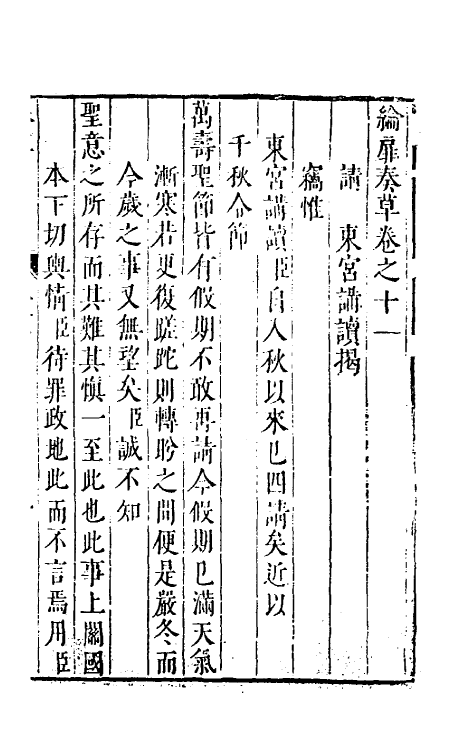 綸扉奏草卷之十一
請　東宮講讀揭
竊惟
東宮講讀臣自入秋以來已四請矣近以
千秋令節
萬壽聖節皆有假期不敢再請今假期已滿天氣
漸寒若更復蹉跎則轉盼之間便是嚴冬而
今歲之事又無望矣臣誠不知
聖意之所存而其難其慎一至此也此事上關國
本下切輿情臣待罪政地此而不言焉用臣